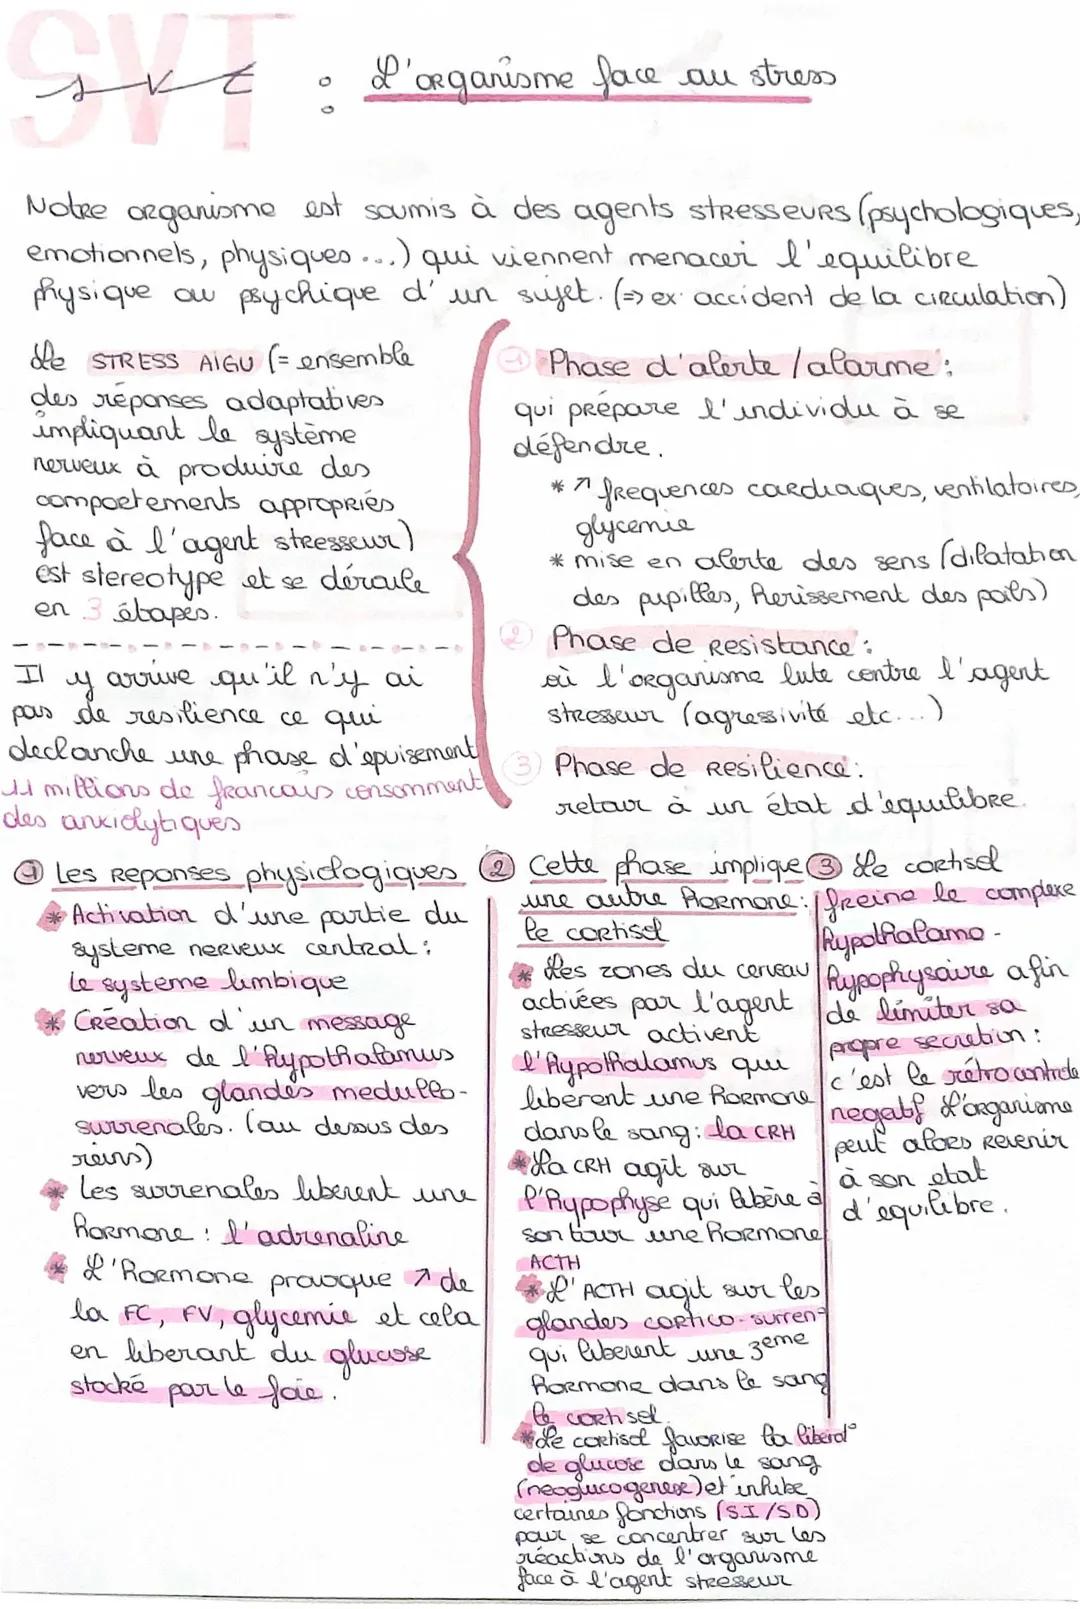 SVT
svt : L'organisme face au stress
Notre organisme est soumis à des agents stresseurs (psychologiques,
emotionnels, physiques...) qui viennent menacer l'equilibre
physique ou psychique d'un sujet. (=> ex: accident de la circulation)
Le STRESS AIGU (= ensemble
des réponses adaptatives
impliquant le système
nerveux à produire des
comportements appropriés
face à l'agent stresseur)
est stereotype et se déroule
en 3 étapes.
Il y arrive qu'il n'y ai
pas de resilience ce qui
declanche une phase d'epuisement
11 millions de francais consomment
des anxiolytiques
1 Phase d'alerte / alarme :
qui prépare l'individu à se
défendre.
* ↗ frequences cardiaques, ventilatoires,
glycemie
* mise en alerte des sens (dilatation
des pupilles, herissement des poils)
2 Phase de resistance :
où l'organisme lute contre l'agent
stresseur (agressivité etc...)
3 Phase de Resilience :
retour à un état d'equilibre.
1 Les reponses physiologiques
* Activation d'une partie du
systeme nerveux central :
le systeme limbique
* Création d'un message
nerveux de l'hypothalamus
vers les glandes medullo-
surrenales. (au dessus des
reins)
* Les surrenales liberent une
hormone : l'adrenaline
* L'hormone provoque ↗ de
la FC, FV, glycemie et cela
en liberant du glucose
stocké par le foie.
2 Cette phase implique
une autre hormone :
le cortisol
* Les zones du cerveau
activées par l'agent
stresseur activent
l'hypothalamus qui
liberent une hormone
dans le sang : la CRH
* La CRH agit sur
l'hypophyse qui libère à
son tour une hormone
ACTH
* L'ACTH agit sur les
glandes cortico-surren°
qui liberent une 3eme
hormone dans le sang
le cortisol.
* Le cortisol favorise la liberat°
de glucose dans le sang
(neoglucogenese) et inhibe
certaines fonctions (S.I/S.D)
pour se concentrer sur les
réactions de l'organisme
face à l'agent stresseur
3 Le cortisol
freine le complexe
hypothalamo-
hypophysaire afin
de limiter sa
propre secretion :
c'est le rétrocontrole
negatif L'organisme
peut alors revenir
à son etat
d'equilibre.